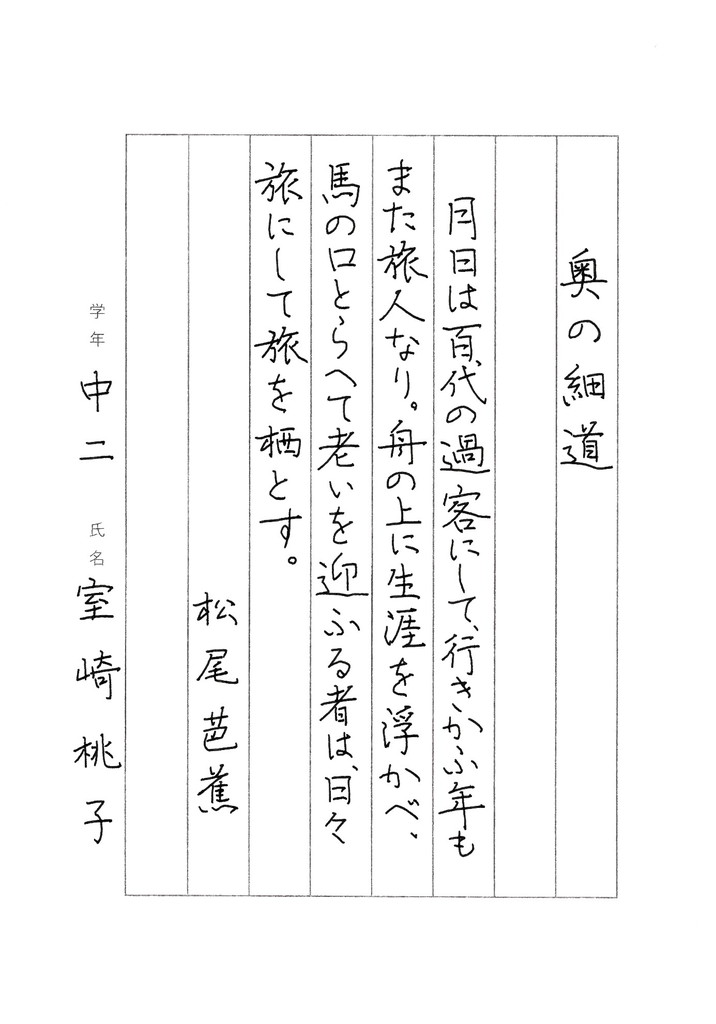 奥の細道
月日は百代の過客にして、行きかふ年も
また旅人なり。舟の上に生涯を浮かべ、
馬の口とらへて老いを迎ふる者は、日々
旅にして旅を栖とす。
松尾芭蕉
学年 中二 氏名 室崎桃子